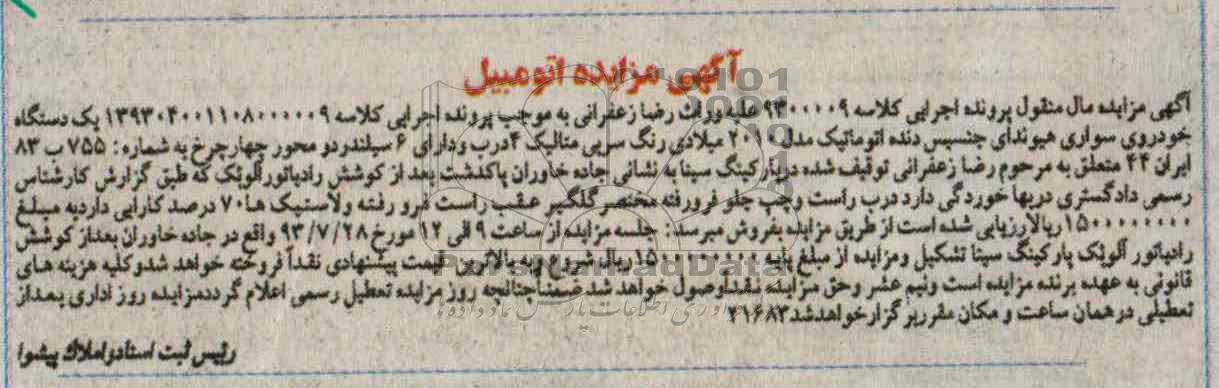 آگهی مزایده اتومبیل
آگهی مزایده مال منقول پرونده اجرایی کلاسه ۹۳۰۰۰۰۹ علیه وراث رضا زعفرانی به موجب پرونده اجرایی کلاسه ۱۳۹۳۰۴۰۰۱۱۰۸۰۰۰۰۰۹ یک دستگاه
خودروی سواری هیوندای جنسیس دنده اتوماتیک مدل ۲۰۱۰ میلادی رنگ سربی متالیک ۴درب ودارای ۶ سیلندردو محور چهارچرخ به شماره : ۷۵۵ ب ۸۳
ایران ۴۴ متعلق به مرحوم رضا زعفرانی توقیف شده درپارکینگ سینا به نشانی جاده خاوران پاکدشت بعد از کوشش رادیاتورآلوتک که طبق گزارش کارشناس
رسمی دادگستری دربها خوردگی دارد درب راست وچپ جلو فرورفته مختصر گلگیر عقب راست فرو رفته ولاستیک ها۷۰ درصد کارایی داردبه مبلغ
۱۵۰۰۰۰۰۰۰۰ریالارزیابی شده است از طریق مزایده بفروش میرسد: جلسه مزایده از ساعت ۹الی ۱۲ مورخ ۹۳/۷/۲۸ واقع در جاده خاوران بعداز کوشش
رادیاتور آلوتک پارکینگ سینا تشکیل ومزایده از مبلغ پایه ۱۵۰۰۰۰۰۰۰۰ریال شروع وبه بالاترین قیمت پیشنهادی نقداً فروخته خواهد شدوکلیه هزینه های
قانونی به عهده برنده مزایده است ونیم عشر وحق مزایده نقداًوصول خواهد شدضمناًچنانچه روز مزایده تعطیل رسمی اعلام گرددمزایده روز اداری بعداز
تعطیلی درهمان ساعت و مکان مقرربرگزارخواهدشد۲۱۶۸۳
رئیس ثبت اسنادواملاک پیشوا
ParsNamadData